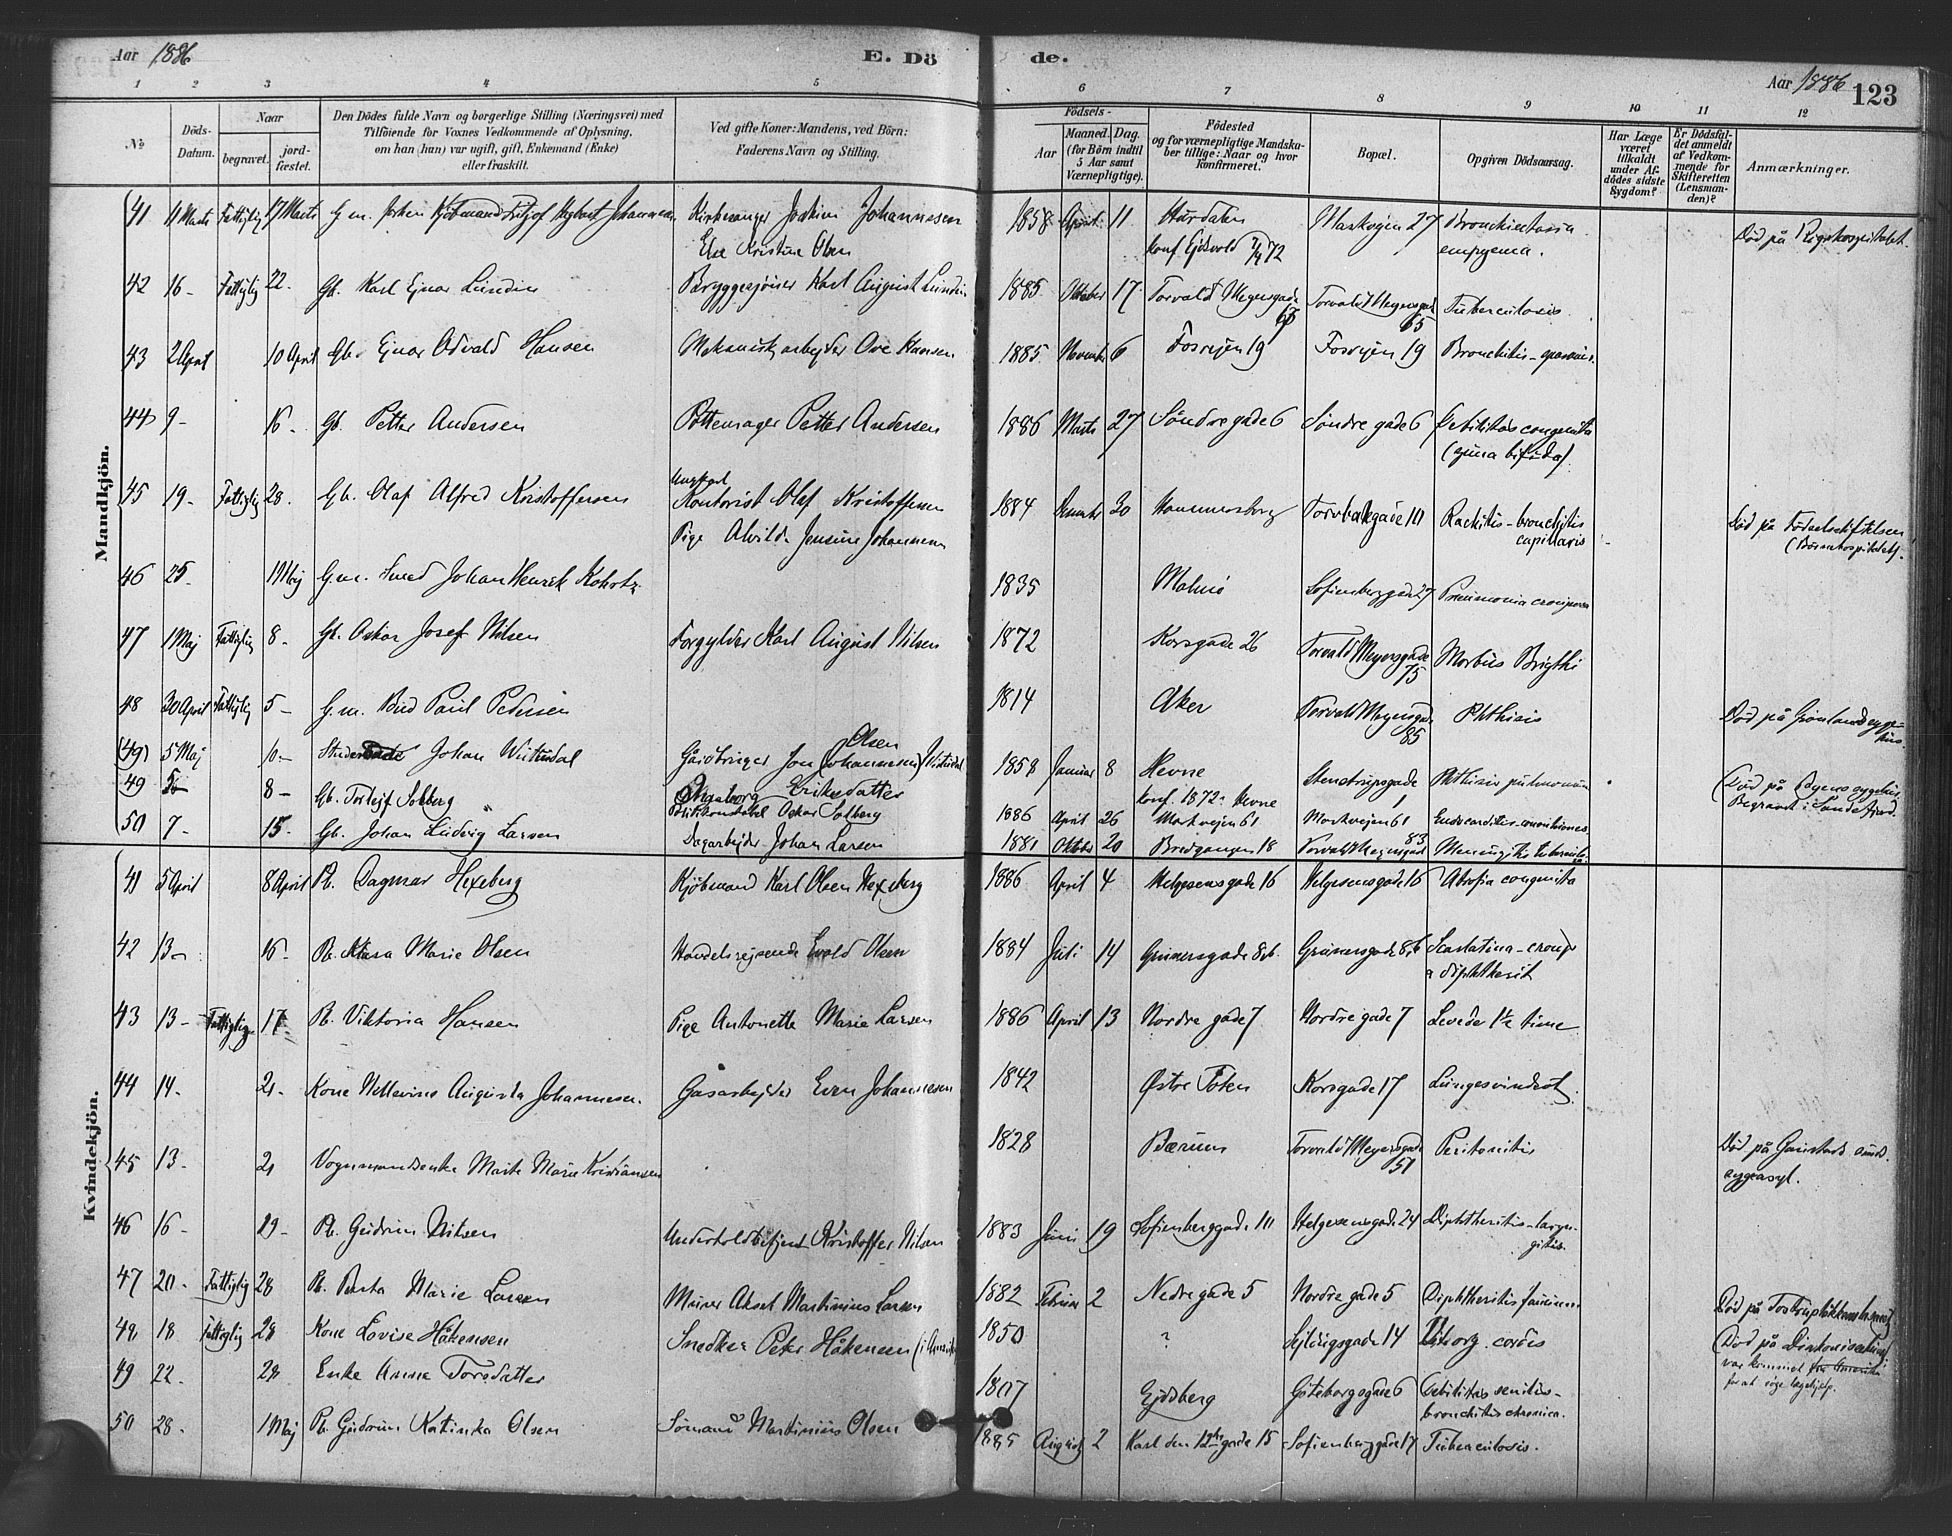 Aar 1886
E. Dö
de.
Aar 1886
123
1 2 3 4 5 6 7 8 9 10 11 12
№
Döds-Datum.
Naar
begravet.
jord-fæstet.
Den Dödes fulde Navn og borgerlige Stilling (Næringsvei) med
Tilföiende for Voxnes Vedkommende af Oplysning,
om han (hun) var ugift, gift, Enkemand (Enke)
eller fraskilt.
Ved gifte Koner: Mandens, ved Börn:
Faderens Navn og Stilling.
Födsels-
Aar
Maaned. Dag.
(for Börn indtil
5 Aar samt
Værnepligtige).
Födested
og for værnepligtige Mandska-
ber tillige: Naar og hvor
konfirmeret.
Bopæl.
Opgiven Dödsaarsag.
Har Læge
været
tilkaldt
under Af-
dödes sidste
Sygdom?
Er Dödsfal-
det anmeldt
af Vedkom-
mende for
Skifteretten
(Lensman-
den)?
Anmærkninger.
Mandkjön.
41 11 Marts Fattiglig 17 Marts G.m. Johannesen Kirkesanger Joakim Johannesen 1858 April 11 Hurdalen Markvejen 27 Bronchiectasia
Else Kristine Olsen konf. Ejdsvold 72 empyema. Död på Rigshospitalet.
42 16 - Fattiglig 22 - Gb. Karl Ejnar Lundin Bryggesjouer Karl August Lundin 1885 Oktober 17 Torvald Meyersgade Torvald Meyersgade Tuberculosis.
65
43 2 April 10 April Gb. Ejnar Odvald Hansen Mekanisk arbejder Ove Hansen 1885 Novemb 6 Fosvejen 19 Fosvejen 19 Bronchitis -
44 9 - 16 - Gb. Petter Andersen Pottemager Petter Andersen 1886 Marts 27 Söndregade 6 Söndregade 6 Debilitas congenita
(spina bifida).
45 19 - Fattiglig 28 - Gb. Olaf Alfred Kristoffersen Ungkarl
Kontorist Olaf Kristoffersen 1884 December 30 Hammersborg Torvbakgade 10 Rachitis - bronchitis
Pige Alvilde Jensine Johannesen capillaris Död på Födselsstiftelsen
(Börnehospitalet).
46 25 - 1 Maj G.m. Smed Johan Henrik 1835 Malmö Sofienberggade 27 Pneumonia crouposa
47 1 Maj Fattiglig 8 - Gb. Oskar Josef Nilsen Forgylder Karl August Nilsen 1872 Korsgade 26 Torvald Meyersgade Morbus Brigthi
75
48 30 April Fattiglig 5 - G.m. Bud Paul Pedersen 1814 Aker Torvald Meyersgade Phthisis Död på Grönlands syge-
85 hus.
(49) 5 Maj 10 - Johan Gårdbruger Jon (Johannesen) Olsen 1858 Januar 8 Hevne Stenstrupsgade Phthisis pulmonum (Död på Byens sygehus.
Ingeborg Eriksdatter konf. 1872 Hevne 1 Begravet i Sandefjord.
49 5 8 - Gb. Torlejf Solberg Politikonstabel Oskar Solberg 1886 April 26 Markvejen 61 Markvejen 61 Endocarditis
50 7 - 15 - Gb. Johan Ludvig Larsen Dagarbejder Johan Larsen 1881 Oktober 20 Bredgangen 18 Torvald Meyersgad 83 Meningitis tuberculosa
Kvindekjön.
41 5 April 8 April Pb. Dagmar Hexeberg Kjöbmand Karl Olsen Hexeberg 1886 April 4 Helgesensgade 16 Helgesensgade 16 Atrofia congenita
42 13 - 16 - Pb. Klara Marie Olsen Handelsrejsende Evald Olsen 1884 Juli 14 Grünersgade 8b. Grünersgade 8b Scarlatina - croup
a diphtherit
43 13 - Fattiglig 17 Pb. Viktoria Hansen Pige Antonette Marie Larsen 1886 April 13 Nordre gade 7 Nordre gade 7 Levede 1½ time
44 14 - 21 - Kone Augusta Johannesen. Gasarbejder Even Johannesen 1842 Östre Toten Korsgade 17 Lungesvindsot.
45 13 - 21 Vognmandsenke Marte Marie Kristiansen 1828 Bærum Torvald Meyersgade Peritonitis Död på Gaustads sinds-
51 sygeasyl.
46 16 - 19 - Pb. Gudrun Nilsen Underholdbetjent Kristoffer Nilsen 1883 Juni 19 Sofienberggade 10 Helgesensgade 24 Diphtheritis - laryn-
gitis.
47 20 - Fattiglig 28 Pb. Berta Marie Larsen Murer Aksel Martinius Larsen 1882 Februar 2 Nedregade 5 Nordre gade 5 Diphtheritis faucium Död på
18 Fattiglig 28 Kone Lovise Håkensen Snedker Peter Håkensen (i Amerika) 1850 ? Sejldugsgade 14 cordis (Död på
var kommet fra Amerika
for at söge lægehjælp.
49 22 - 28 Enke Anne Torsdatter 1807 Ejdsberg Göteborgsgade 6 Debilitas senilis -
bronchitis chronica.
50 28 - 1 Maj Pb. Gudrun Katinka Olsen Sömand Martinius Olsen 1885 August 2 Karl den 12tes gade 15 Sofienberggade 17 Tuberculosis.